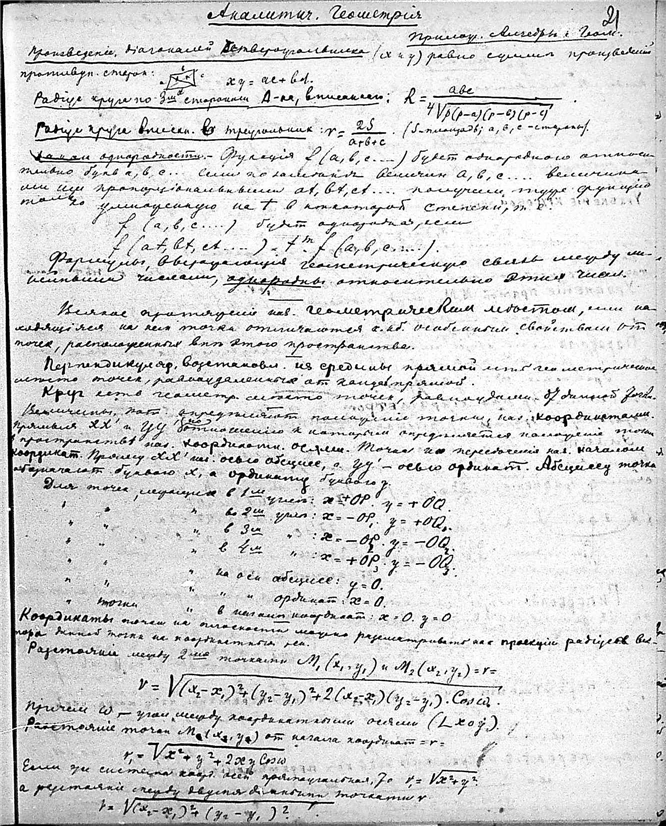 21
Аналитич. Геометрія
Прилож. Алгебры к Геом.
Произведеніе діагоналей четвероугольника (x и y) равно суммѣ произведеній
противуп. сторон: xy = ac + bd.
Радіус круга по 3м сторонам Δ-ка, вписаннаго: R = abc / 4√p(p-a)(p-b)(p-c)
Радіус круга вписан. в треугольник: r = 2S / a+b+c. (S-площадь; a, b, c - стороны)
Закон однородности. Функція f(a, b, c....) будет однородною относи-
тельно букв a, b, c... если по замѣнѣ величин a, b, c.... величина-
ми им пропорціональными at, bt, ct.... получим туже функцію
только умноженную на t в некоторой степени, т. е.
f (a, b, c....) будет однородная, если
f (at, bt, ct....) = t^m f (a, b, c....).
Формулы, выражающія геометрическую связь между ли-
нейными числами, однородны относительно этих чисел.
Всякое протяженіе наз. геометрическим мѣстом, если на-
ходящіяся на нем точки отличаются к.нб. особенным свойством от
точек, расположенных внѣ этого пространства.
Перпендикуляр, возстановл. из средины прямой есть геометрическое
мѣсто точек, равноудаленных от концов прямой.
Круг есть геометр. мѣсто точек, равноудален. от данной точки.
Величины, кот. опредѣляют положеніе точки, наз. координатами.
Прямыя XX' и YY' по отношенію к которым опредѣляется положеніе точки
в пространствѣ наз. координатн. осями. Точка их пересѣченія наз. началом
координат. Прямую XX' наз. осью абсцисс, а YY' - осью ординат. Абсциссу точки
обозначают буквою x, а ординату буквою y.
Для точек, лежащих в 1м углу: x = +OP, y = +OQ.
" " в 2м углу: x = -OP, y = +OQ.
" " в 3м " : x = -OP. y = -OQ.
" " в 4м " : x = +OP, y = -OQ.
" " на оси абсцисс: y = 0.
" " " ординат: x = 0.
" точки " в началѣ координат: x = 0. y = 0
Координаты точки на плоскости можно разсматривать как проекціи радіуса век-
тора данной точки на координатныя оси.
Разстояніе между 2мя точками M₁(x₁, y₁) и M₂(x₂, y₂) = r =
r = √(x₂-x₁)²+(y₂-y₁)²+2(x₂-x₁)(y₂-y₁).Cosω.
Причем ω - угол между координатными осями (∠xoy).
Разстояніе точки M(x, y) от начала координат = r =
r₁ = √x²+y²+2xyCosω
Если же система коорд. осей прямоугольная, то r = √x²+y²
а разстояніе между двумя данными точками r
r = √(x₂-x₁)²+(y₂-y₁)².